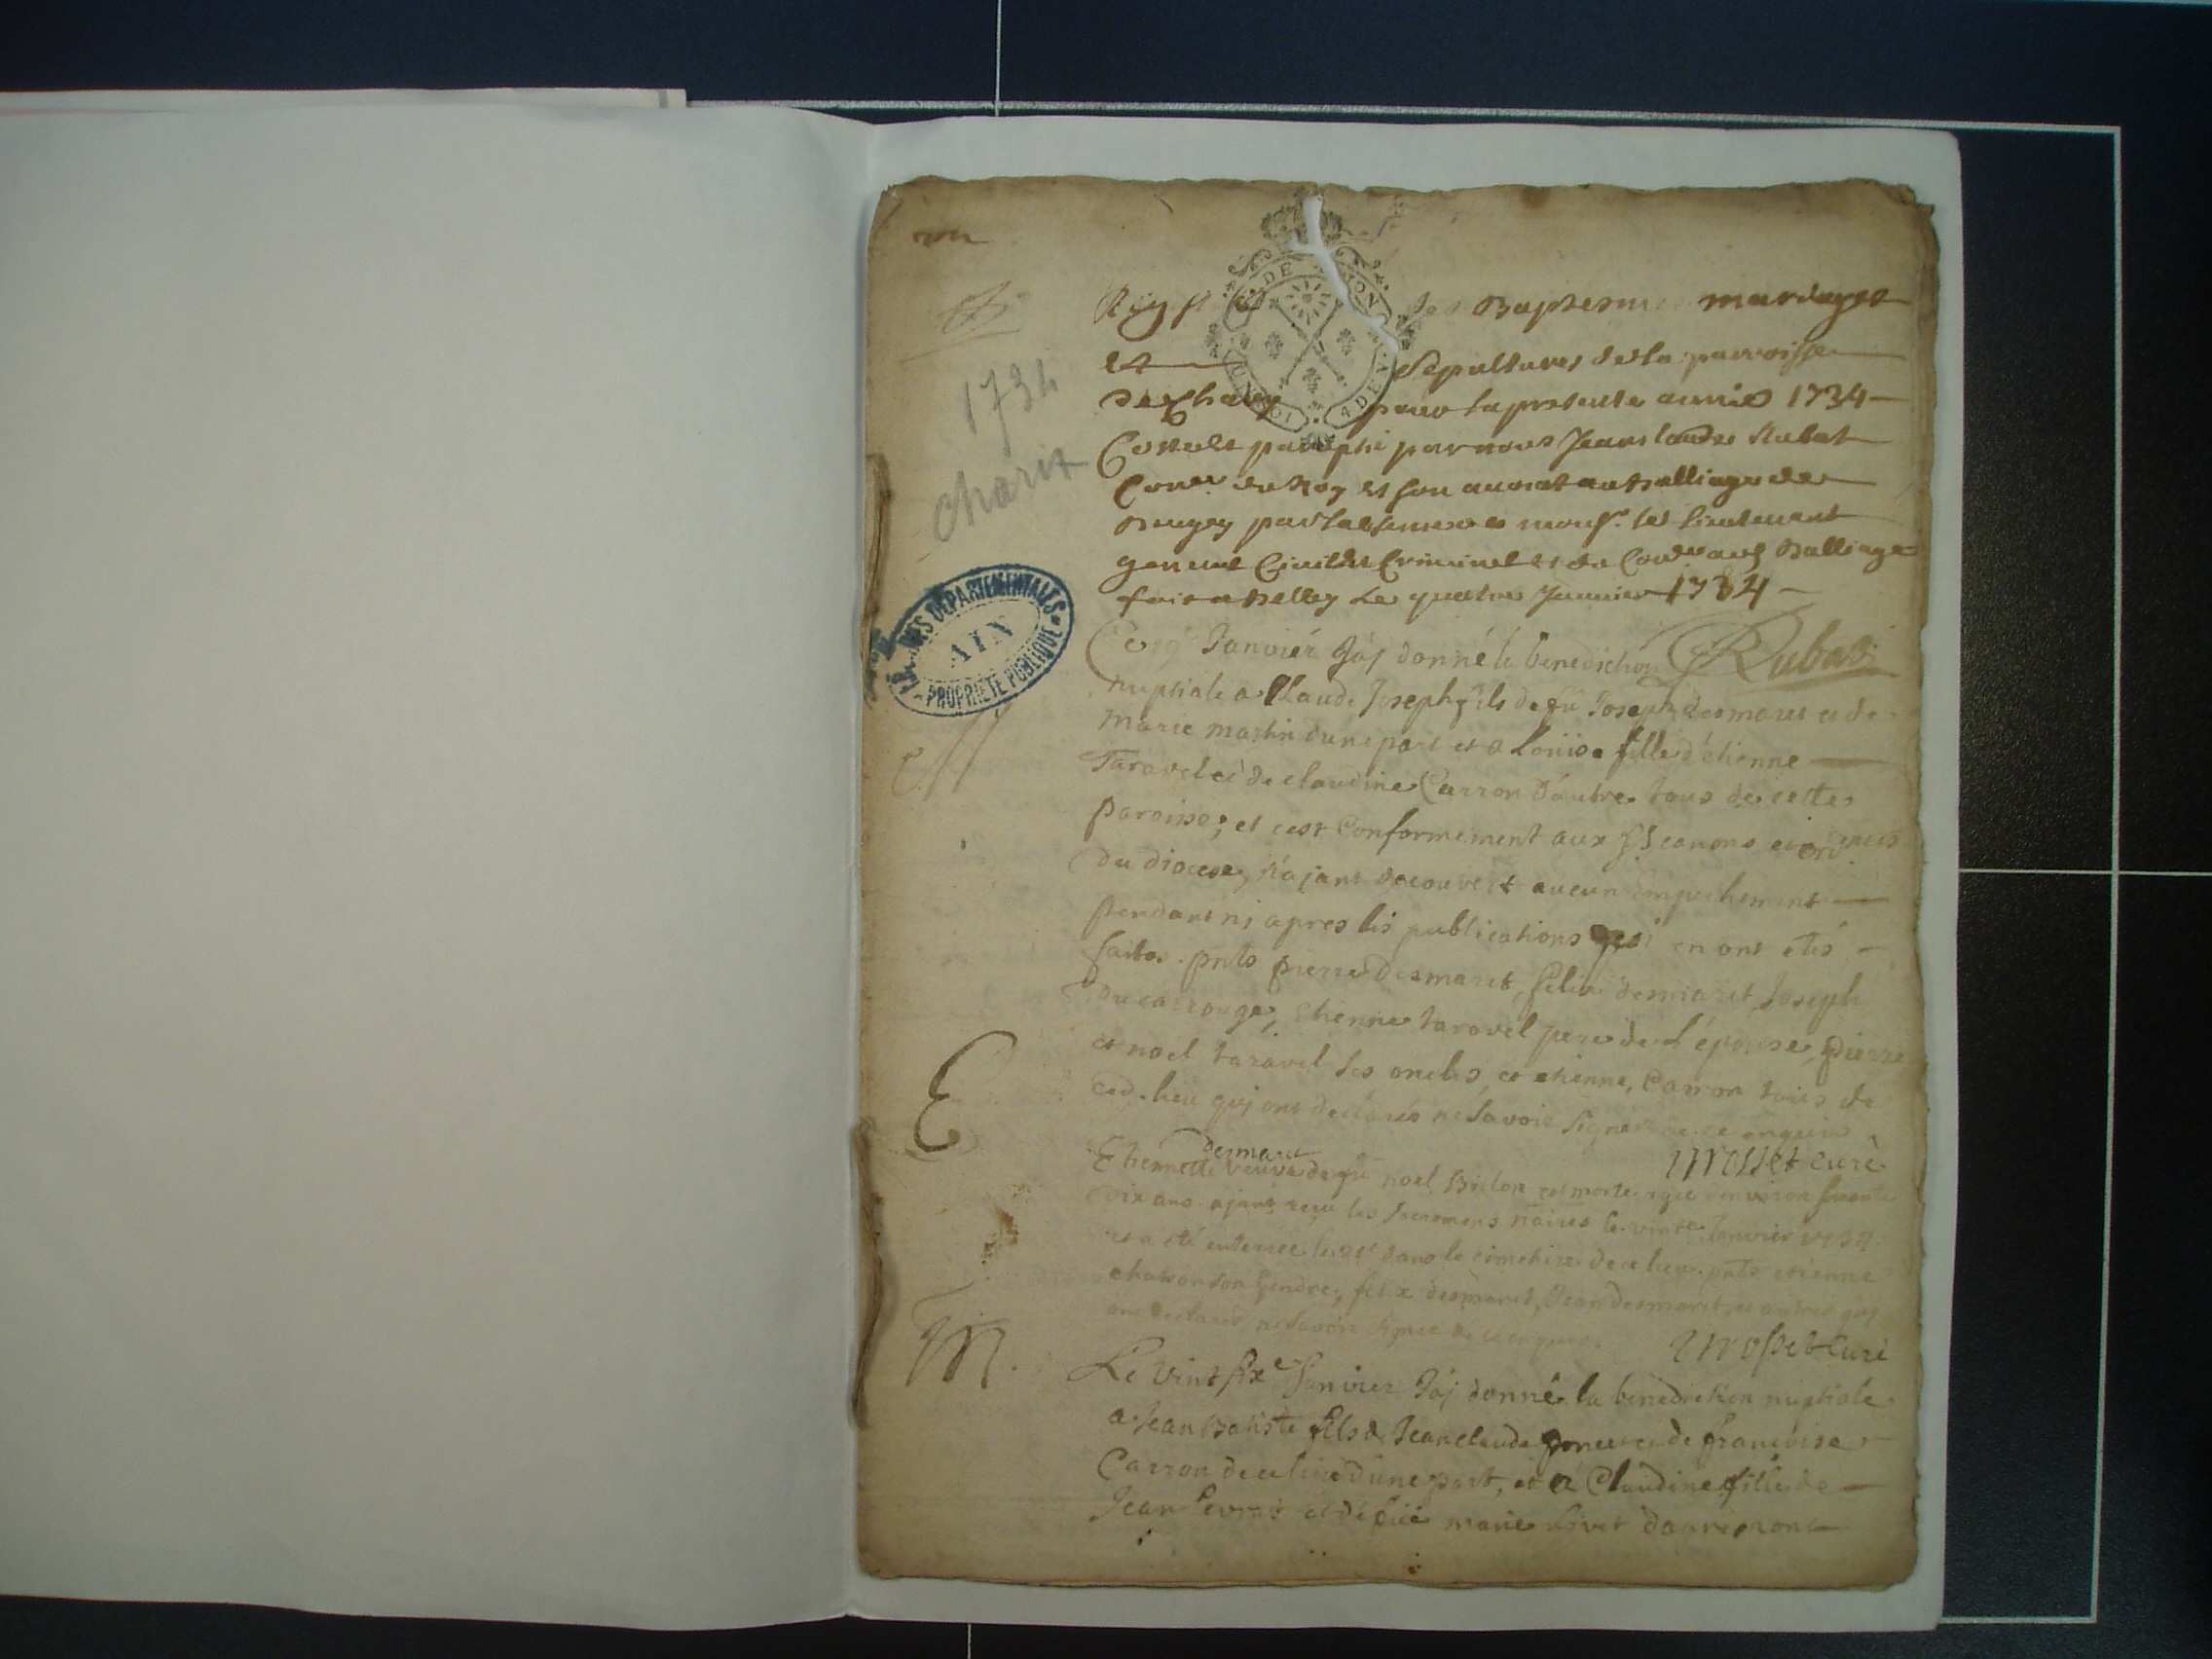 1734
Charix
ARCHIVES DEPARTEMENTALES
AIN
PROPRIETE PUBLIQUE
des Baptesmes mariages
et Sepultures de la parroisse
de Chary pour la presente année 1734
Cotté et paraphé par nous Jean Rubat
du Roy et son avocat au Balliage de
Bugey par l'absence de monsr. le lieutenant
general Civil et Criminel Balliage
fait a Belley le quatre Janvier 1734
Rubat
Janvier Jaj donné la benediction
nuptiale a Claude Joseph fils de fû Joseph desmaret et de
marie martin d'une part et a Loüise fille d'etienne
Taravel et de claudine Carron d'autre tous de cette
paroisse; et cest Conformement aux Sts canons et
du diocese, n'ajant decouvert aucun empechement
pendant nj apres les publications qui en ont etés
faites. pnts pierre desmaret, felix desmaret, Joseph
Ducarrouge, etienne taravel pere de L'épouse, pierre
et noel taravel ses oncles, et etienne Carron tous de
ced. lieu qui ont declarés ne savoir signer de ce enquis
Mosset curé
E
desmaret
Etiennette veuve de fû noel est morte agée d'environ
dix ans ajant reçu les sacremens le vint Janvier 1734
et a été enterrée dans le cimetiere de ce lieu. pnts etienne
son gendre, felix desmaret, Jean desmaret, et autres qui
ont declarés ne savoir signer de ce enquis.
Mosset Curé
M.
Le vint six e Janvier Jaj donné la benediction nuptiale
a Jean Batiste fils de Jean claude et de françoise
Carron de ce lieu d'une part, et a Claudine fille de
Jean et de marie